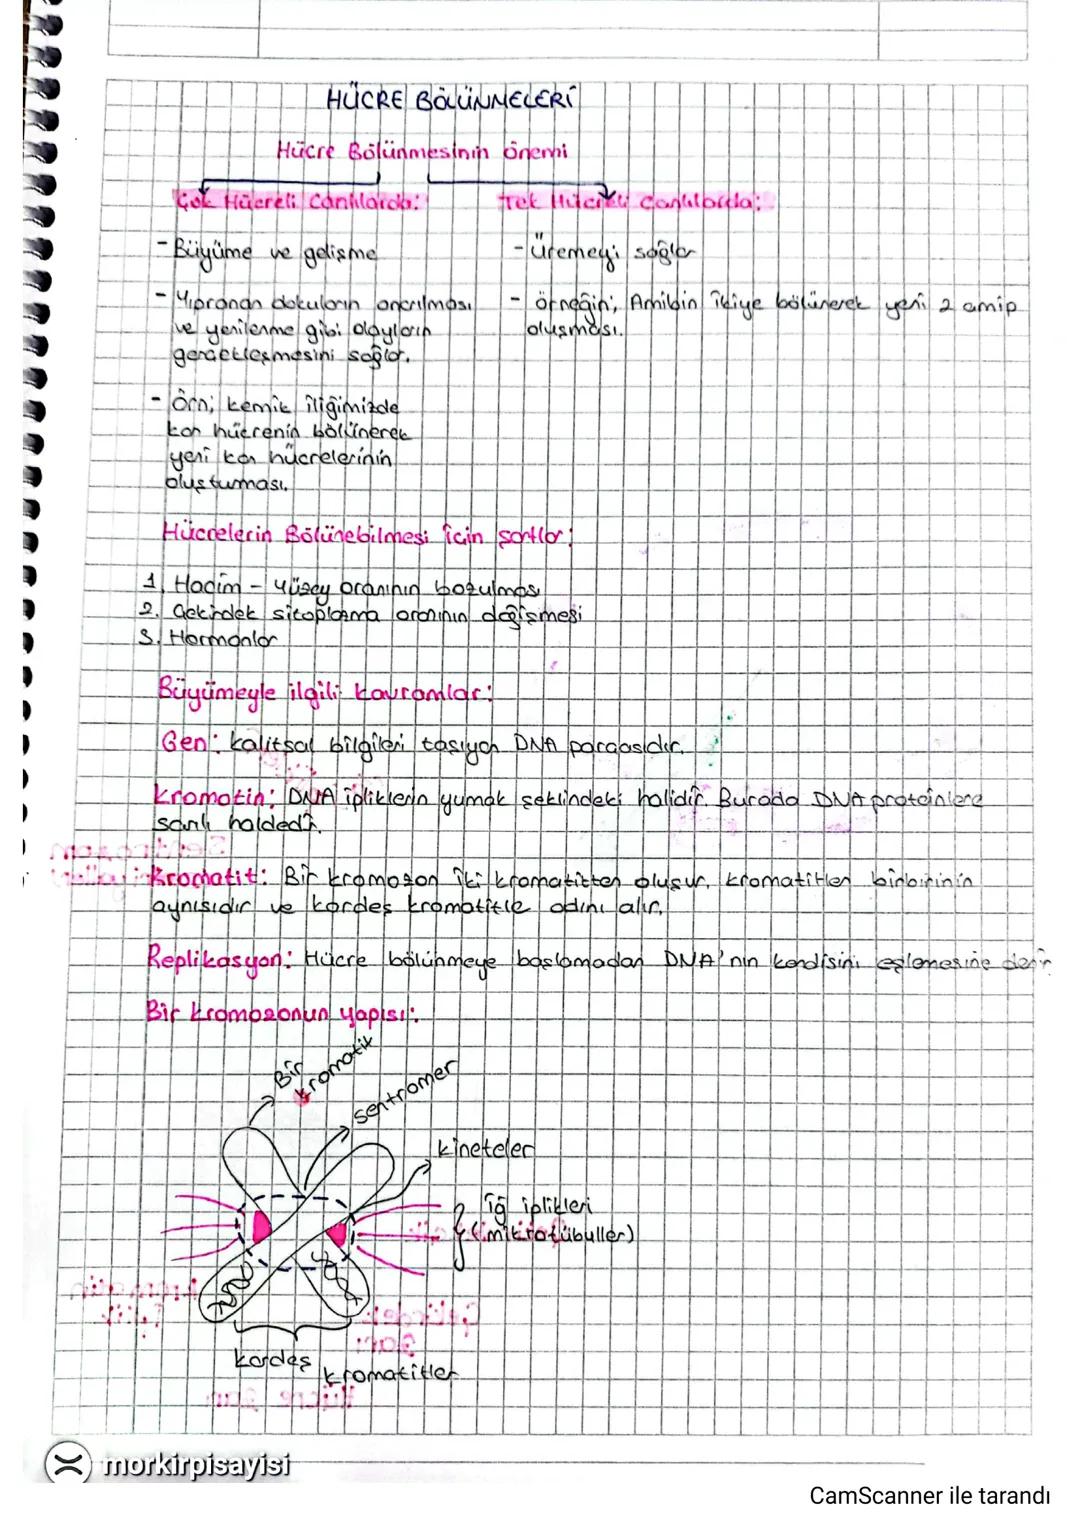 HÜCRE BÖLÜNMELERİ
Hücre Bölünmesinin önemi
Çok Hücreli Canlılarda:
Tek Hücreli Canlılarda:
- Büyüme ve gelişme
- Yıpranan dokuların onarılması
ve yenilenme gibi olayların
gerçekleşmesini sağlar.
- Örn; kemik iliğimizde
kan hücrenin bölünerek
yeni kan hücrelerinin
oluşturması.
- Üremeyi sağlar
- örneğin; Amibin ikiye bölünerek yeni 2 amip
oluşması.
Hücrelerin Bölünebilmesi için şartlar:
1. Hacim - yüzey oranının bozulması
2. Çekirdek sitoplazma oranının değişmesi
3. Hormonlar
Büyümeyle ilgili kavramlar:
Gen: kalıtsal bilgileri taşıyan DNA parçasıdır.
Kromotin: DNA ipliklerin yumak şeklindeki halidir. Burada DNA proteinlere
sarılı haldedir.
Kromatit: Bir kromozon iki kromatitten oluşur. kromatitler birbirinin
aynısıdır ve kardeş kromatitle adını alır.
Replikasyon: Hücre bölünmeye başlamadan DNA'nın kendisini eşlemesine denir
Bir kromozonun yapısı:
Bir
kromatit
sentromer
kineteler
iğ iplikleri
(mikrotübuller)
kardeş
kromatitler
morkirpisayisi
CamScanner ile tarandı